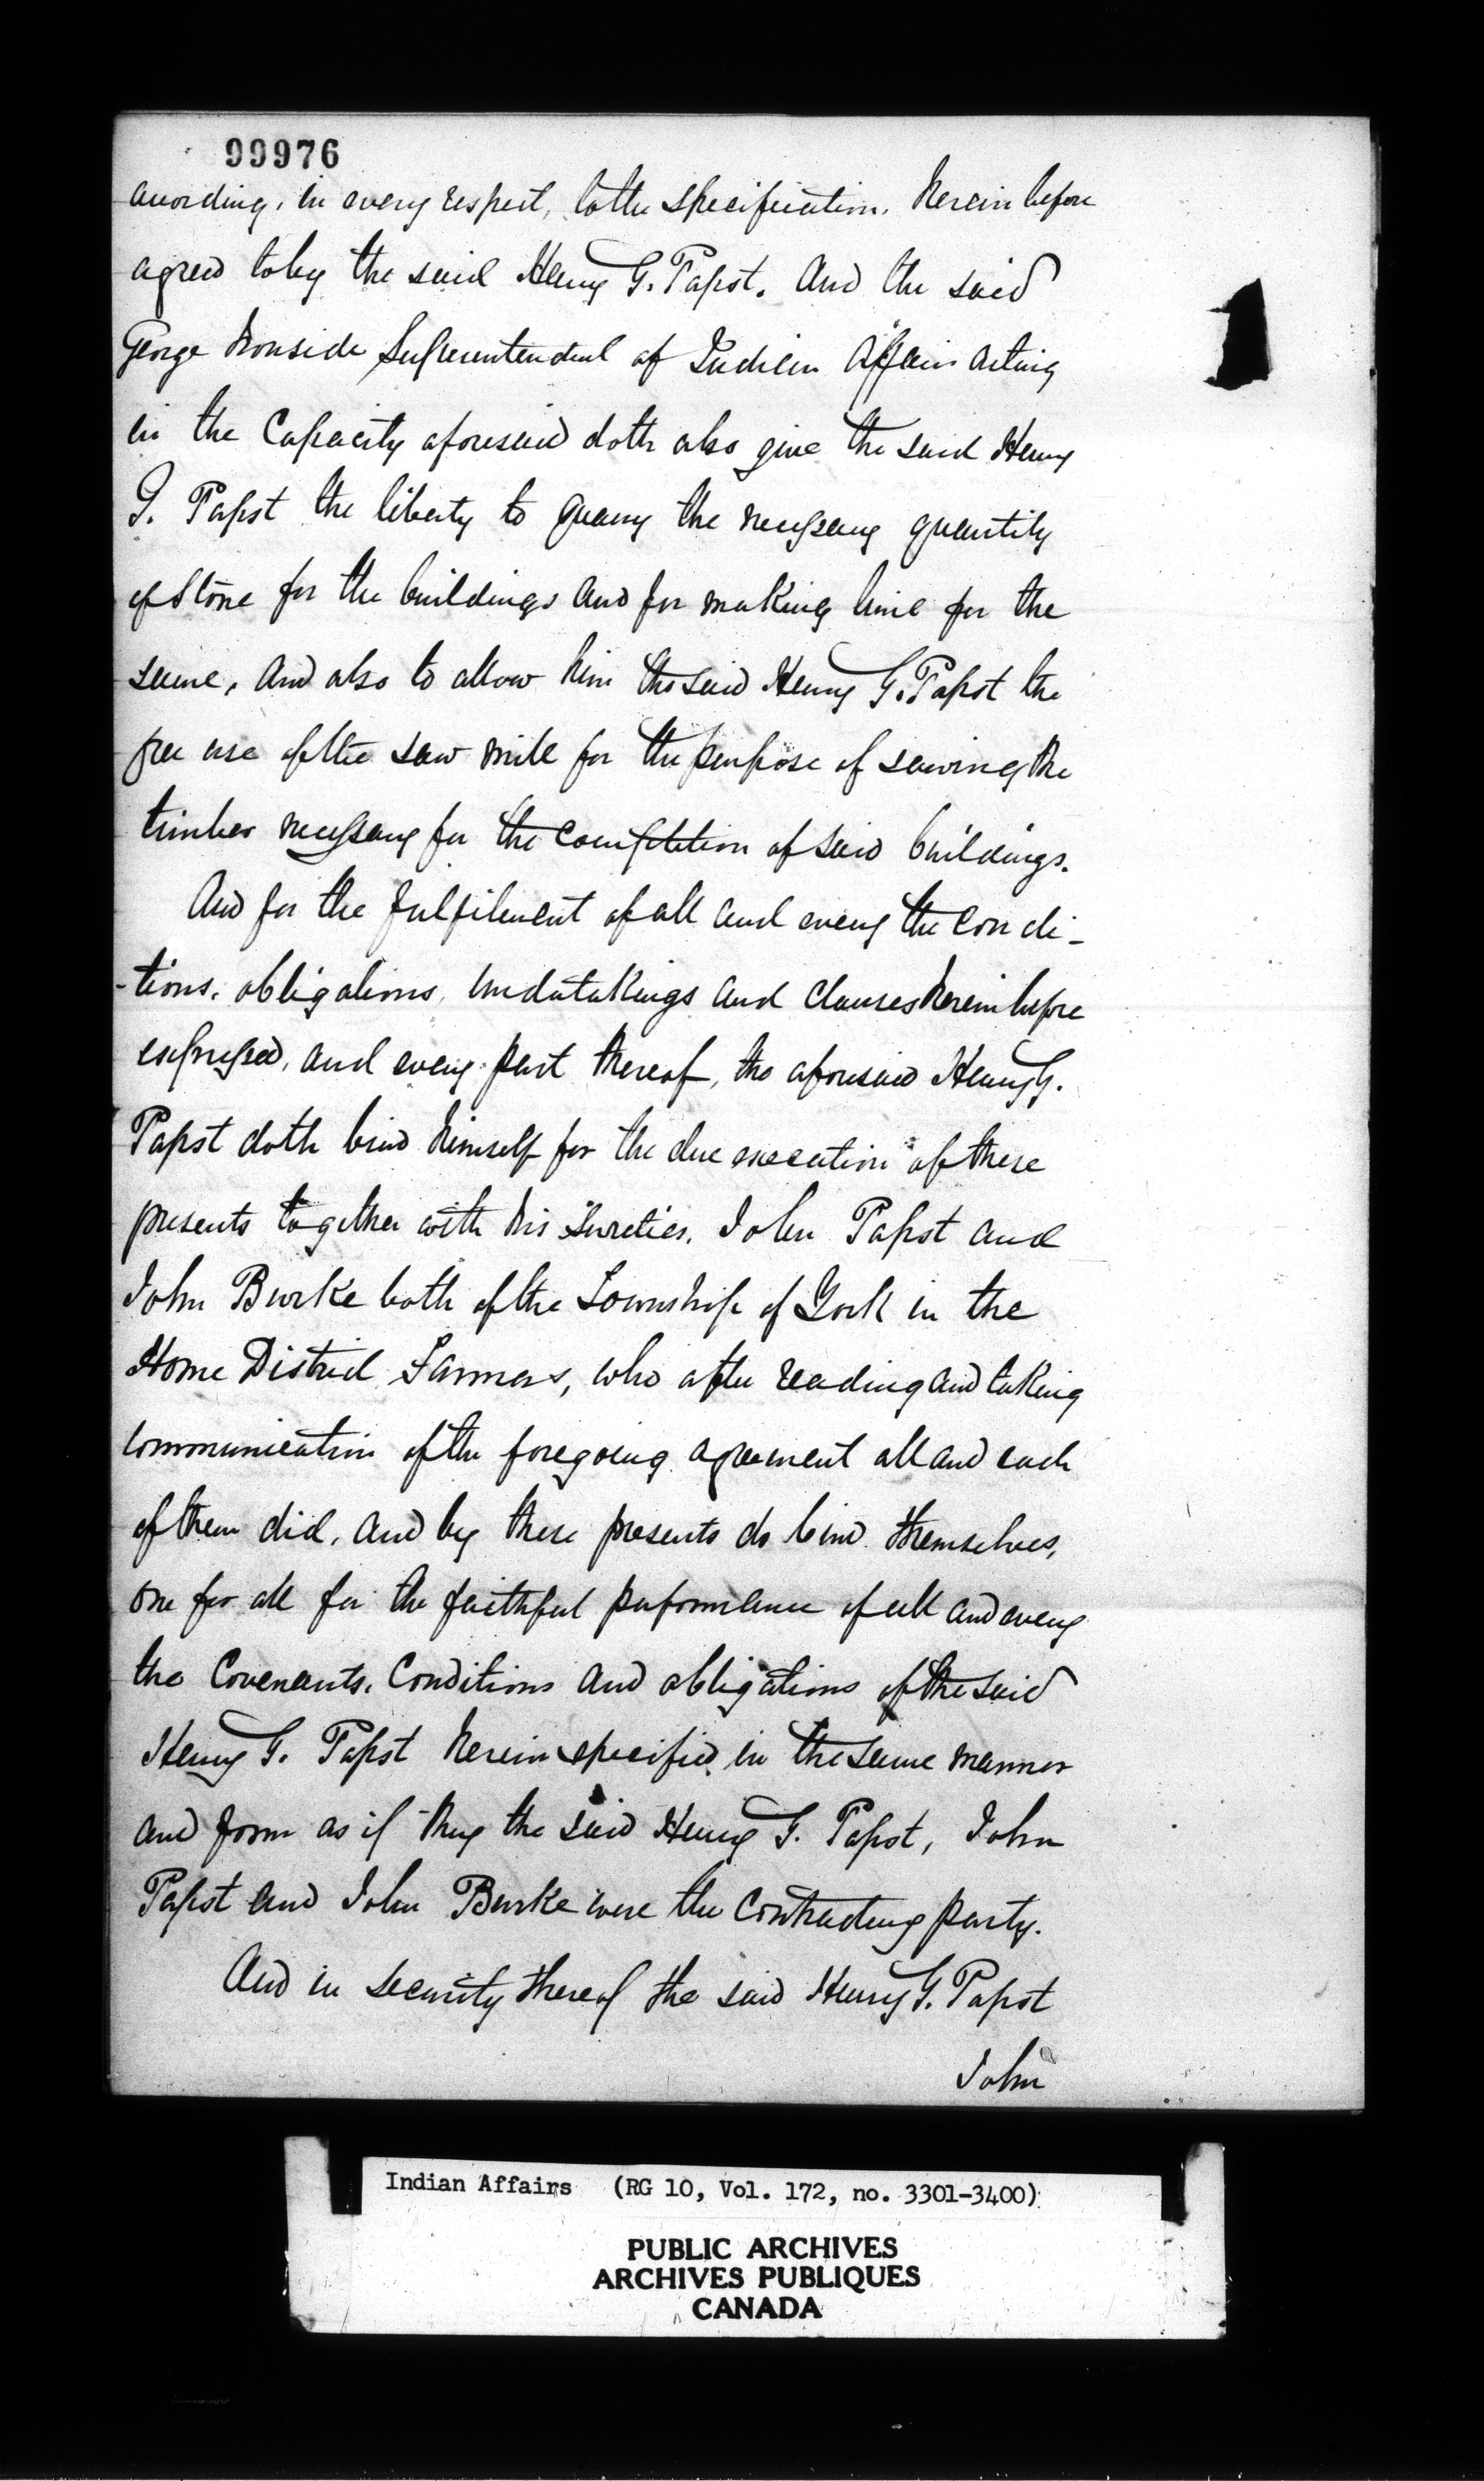 99976
according, in every respect, to the specification, herein before
agreed to by the said Henry G. Papst. And the said
George Ironside Superintendent of Indian Affairs acting
in the Capacity aforesaid doth also give the said Henry
G. Papst the liberty to quarry the necessary quantity
of Stone for the buildings and for making lime for the
same, And also to allow him the said Henry G. Papst the
free use of the saw mill for the purpose of sawing the
timber necessary for the completion of said buildings.
And for the fulfilment of all and every the condi-
-tions, obligations, undertakings and clauses herein before
expressed, and every part thereof, the aforesaid Henry G.
Papst doth bind himself for the due execution of these
presents together with his sureties, John Papst and
John Burke both of the Township of York in the
Home District Farmers, who after reading and taking
communication of the foregoing agreement all and each
of them did, and by these presents do bind themselves,
one for all for the faithful performance of all and every
the Covenants, Conditions and obligations of the said
Henry G. Papst herein specified, in the same manner
and form as if they the said Henry G. Papst, John
Papst and John Burke were the contracting party.
And in security thereof the said Henry G. Papst
John
Indian Affairs (RG 10, Vol. 172, no. 3301-3400)
PUBLIC ARCHIVES
ARCHIVES PUBLIQUES
CANADA